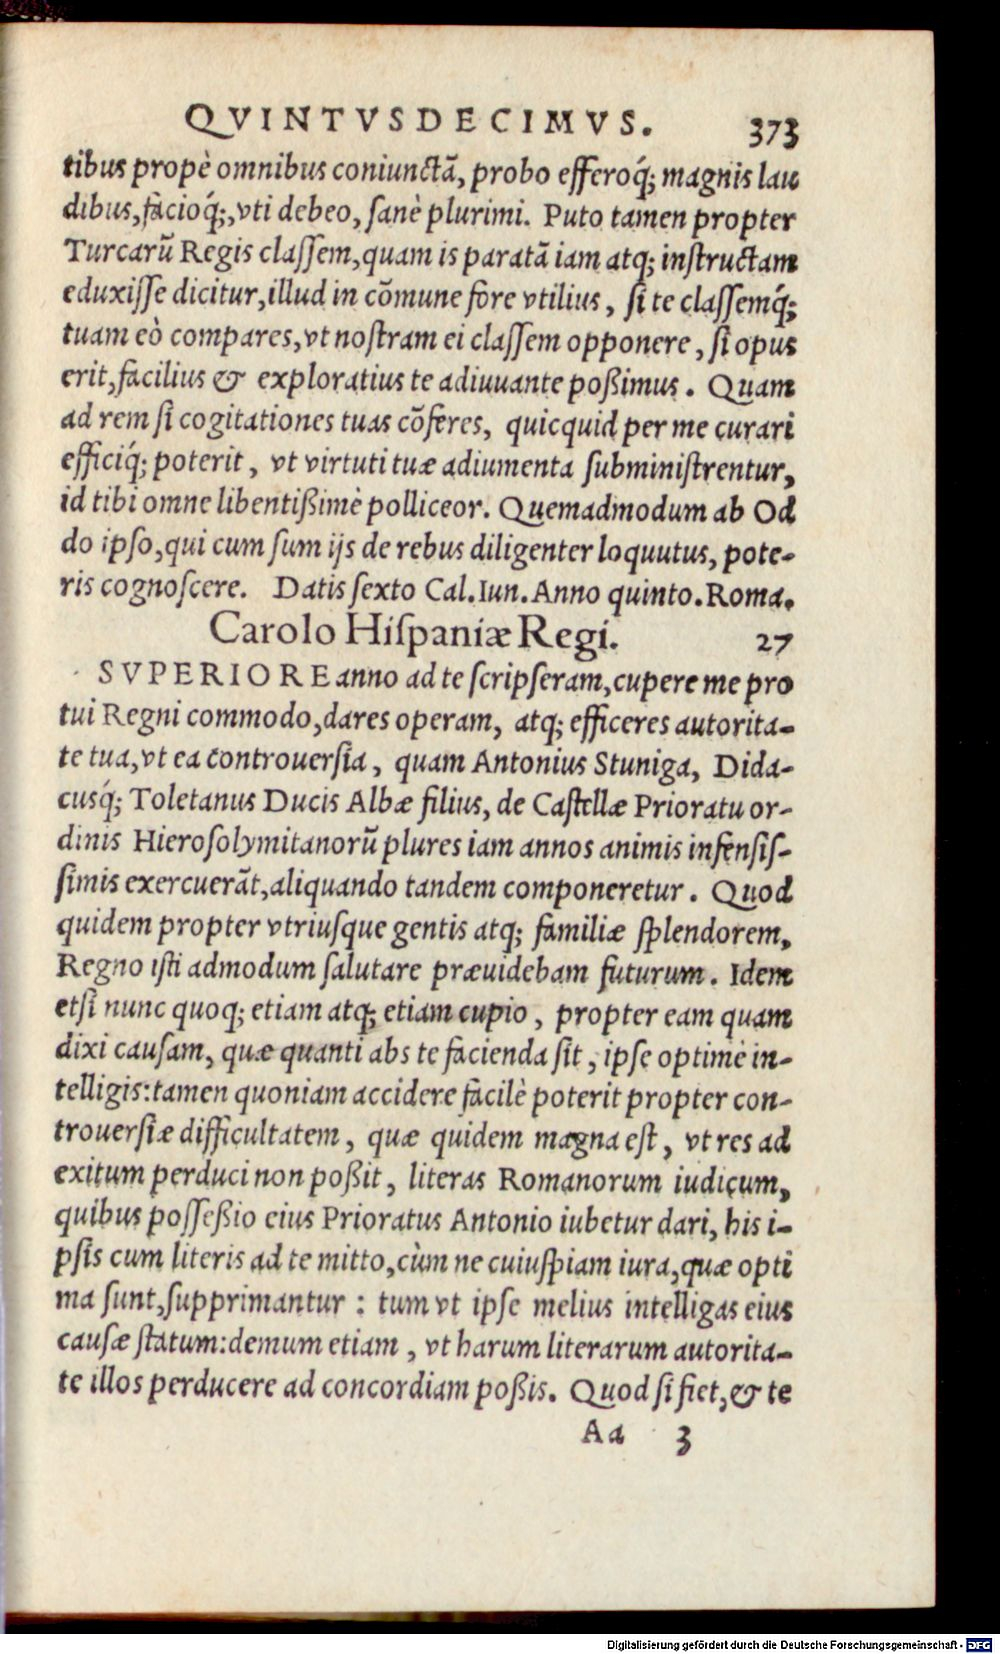 QVINTVSDECIMVS. 373
tibus propè omnibus coniunctã, probo efferoq́; magnis lau
dibus, facioq́;, vti debeo, sanè plurimi. Puto tamen propter
Turcarũ Regis classem, quam is paratã iam atq; instructam
eduxisse dicitur, illud in cõmune fore vtilius, si te classemq́;
tuam eò compares, vt nostram ei classem opponere, si opus
erit, facilius & exploratius te adiuuante poßimus. Quam
ad rem si cogitationes tuas cõferes, quicquid per me curari
efficiq́; poterit, vt virtuti tuæ adiumenta subministrentur,
id tibi omne libentißimè polliceor. Quemadmodum ab Od
do ipso, qui cum sum ijs de rebus diligenter loquutus, pote-
ris cognoscere. Datis sexto Cal. Iun. Anno quinto. Roma.
Carolo Hispaniæ Regi. 27
SVPERIORE anno ad te scripseram, cupere me pro
tui Regni commodo, dares operam, atq; efficeres autorita-
te tua, vt ea controuersia, quam Antonius Stuniga, Dida-
cusq́; Toletanus Ducis Albæ filius, de Castellæ Prioratu or-
dinis Hierosolymitanorũ plures iam annos animis infensis-
simis exercuerãt, aliquando tandem componeretur. Quod
quidem propter vtriusque gentis atq; familiæ splendorem,
Regno isti admodum salutare præuidebam futurum. Idem
etsi nunc quoq; etiam atq; etiam cupio, propter eam quam
dixi causam, quæ quanti abs te facienda sit, ipse optimè in-
telligis: tamen quoniam accidere facilè poterit propter con-
trouersiæ difficultatem, quæ quidem magna est, vt res ad
exitum perduci non poßit, literas Romanorum iudicum,
quibus posseßio eius Prioratus Antonio iubetur dari, his i-
psis cum literis ad te mitto, cùm ne cuiuspiam iura, quæ opti
ma sunt, supprimantur: tum vt ipse melius intelligas eius
causæ statum: demum etiam, vt harum literarum autorita-
te illos perducere ad concordiam poßis. Quod si fiet, & te
Aa 3
Digitalisierung gefördert durch die Deutsche Forschungsgemeinschaft - DFG